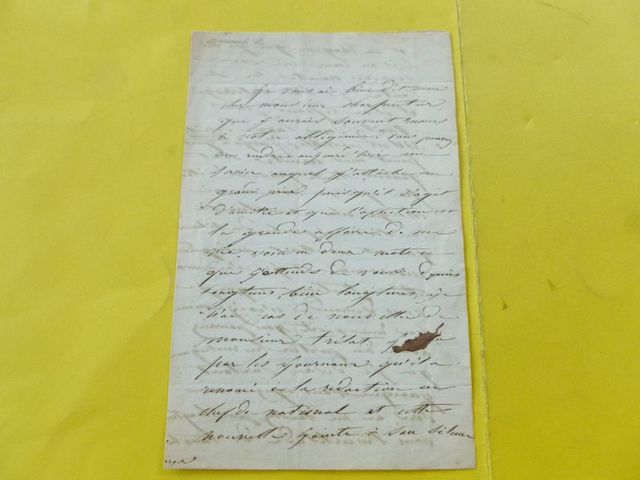 je vous ai bien dit mon
cher monsieur charpentier
que j'aurais souvent recours
à votre obligeance : vous pouvez
me rendre aujourd'hui un
service auquel j'attache un
grand prix puisqu'il s'agit
d'amitié et que l'affection est
la grande affaire de ma
vie, voici en deux mots ce
que j'attends de vous. depuis
longtems, bien longtems, je
n'ai pas de nouvelle de
monsieur trélat.
par les journaux qu'il a
renoncé à la rédaction en
chef de national et cette
nouvelle jointe à son silence